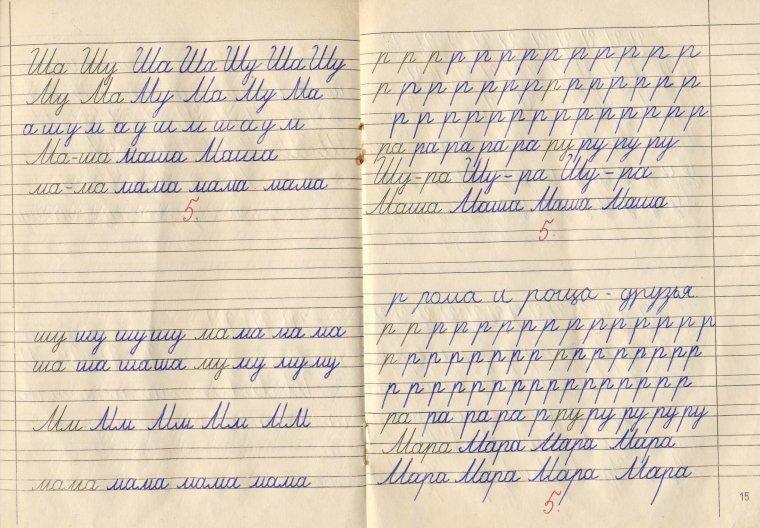 Ша Шу Ша Ша Шу Ша Шу
Му Ма Му Ма Му Ма
а ш у м а у ш м ш а у м
Ма-ша маша Маша
ма-ма мама мама мама
5.
шу шу шу шу ма ма ма ма
ша ша шаша му му му му
Мм Мм Мм Мм ММ
мама мама мама мама
р р р р р р р р р р р р р р
р р р р р р р р р р р р р р
р р р р р р р р р р р р р р
ра ра ра ра ра ру ру ру ру
Шу-ра Шу-ра Шу-ра
Маша Маша Маша Маша
5.
р рома и роща - друзья.
р р р р р р р р р р р р р р р
р р р р р р р р р р р р р р
р р р р р р р р р р р р р р р
ра ра ра ра р ру ру ру ру ру
Мара Мара Мара Мара
Мара Мара Мара Мара
5.
15